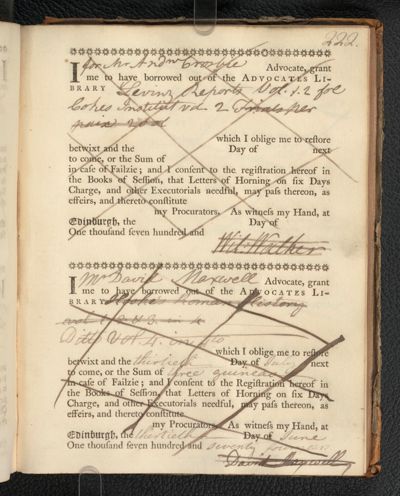 222.
for Mr Andw Crosbie Advocate, grant
I me to have borrowed out of the ADVOCATES LI-
BRARY Levinz Reports Vol. 1. 2 fol
Cokes Institut vol. 2
which I oblige me to reſtore
betwixt and the Day of next
to come, or the Sum of
in caſe of Failzie; and I conſent to the regiſtration hereof in
the Books of Seſſion, that Letters of Horning on ſix Days
Charge, and other Executorials needful, may paſs thereon, as
effeirs, and thereto conſtitute
my Procurators. As witneſs my Hand, at
Edinburgh, the Day of
One thouſand ſeven hundred and
I Mr David Maxwell Advocate, grant
me to have borrowed out of the ADVOCATES LI-
BRARY Hooke's Roman History
vol. 1. 2. & 3. in 4
Ditto Vol. 4. in 4to
which I oblige me to reſtore
betwixt and the thirtieth Day of July next
to come, or the Sum of three guineas
in caſe of Failzie; and I conſent to the Regiſtration hereof in
the Books of Seſſion, that Letters of Horning on ſix Days
Charge, and other Executorials needful, may paſs thereon, as
effeirs, and thereto conſtitute
my Procurators. As witneſs my Hand, at
Edinburgh, the thirtieth Day of June
One thouſand ſeven hundred and seventy four
David Maxwell